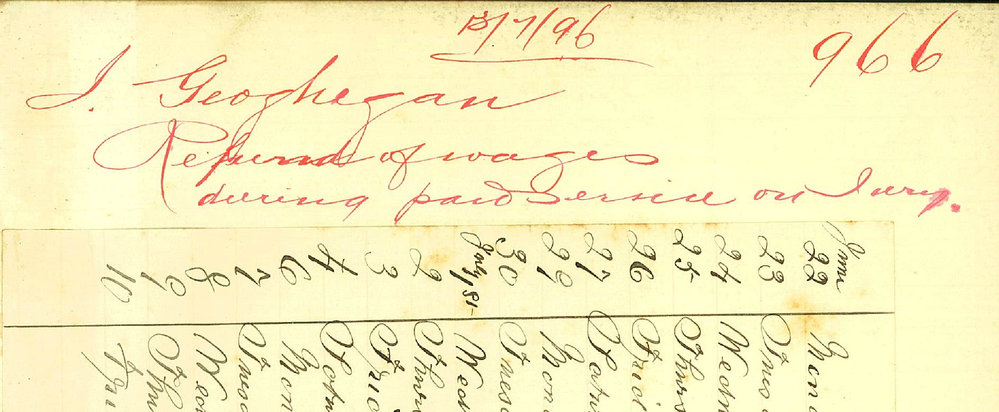 13/7/96
966
J. Geoghegan
Refund of wages
during paid service on Jury.
June 22 Mond
23 Tues
24 Wedn
25 Thurs
26 Frid
27 Satu
29 Mond
30 Tuesd
July 1st Wed
2 Thurs
3 Frid
4 Satu
6 Mon
7 Tuesd
8 Wed
9 Thu
10 Fri